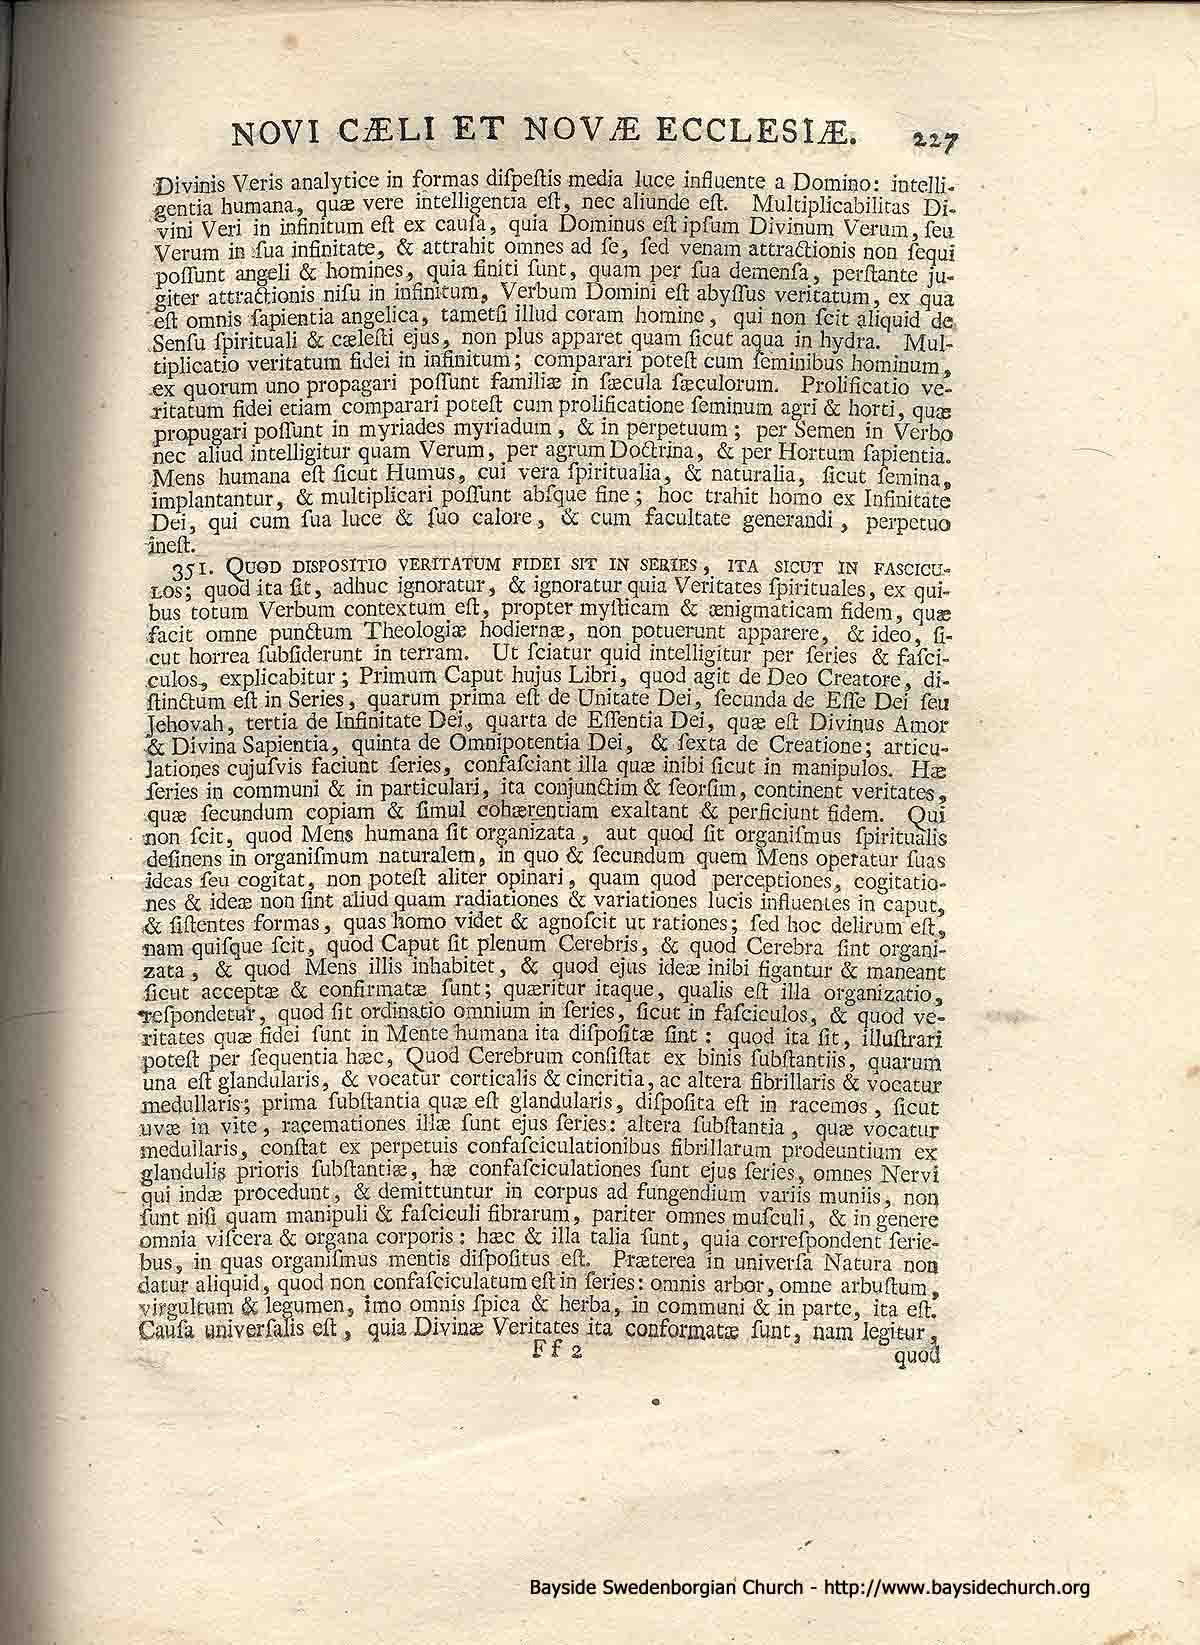 NOVI CÆLI ET NOVÆ ECCLESIÆ. 227
Divinis Veris analytice in formas diſpeſtis media luce influente a Domino: intelli-
gentia humana, quæ vere intelligentia eſt, nec aliunde eſt. Multiplicabilitas Di-
vini Veri in infinitum eſt ex cauſa, quia Dominus eſt ipſum Divinum Verum, ſeu
Verum in ſua infinitate, & attrahit omnes ad ſe, ſed venam attractionis non ſequi
poſſunt angeli & homines, quia finiti ſunt, quam per ſua demenſa, perſtante ju-
giter attractionis niſu in infinitum, Verbum Domini eſt abyſſus veritatum, ex qua
eſt omnis ſapientia angelica, tametſi illud coram homine, qui non ſcit aliquid de
Senſu ſpirituali & cæleſti ejus, non plus apparet quam ſicut aqua in hydra. Mul-
tiplicatio veritatum fidei in infinitum; comparari poteſt cum ſeminibus hominum,
ex quorum uno propagari poſſunt familiæ in ſæcula ſæculorum. Prolificatio ve-
ritatum fidei etiam comparari poteſt cum prolificatione ſeminum agri & horti, quæ
propugari poſſunt in myriades myriadum, & in perpetuum; per Semen in Verbo
nec aliud intelligitur quam Verum, per agrum Doctrina, & per Hortum ſapientia.
Mens humana eſt ſicut Humus, cui vera ſpiritualia, & naturalia, ſicut ſemina,
implantantur, & multiplicari poſſunt abſque fine; hoc trahit homo ex Infinitate
Dei, qui cum ſua luce & ſuo calore, & cum facultate generandi, perpetuo
ineſt.
351. QUOD DISPOSITIO VERITATUM FIDEI SIT IN SERIES, ITA SICUT IN FASCICU-
LOS; quod ita ſit, adhuc ignoratur, & ignoratur quia Veritates ſpirituales, ex qui-
bus totum Verbum contextum eſt, propter myſticam & ænigmaticam fidem, quæ
facit omne punctum Theologiæ hodiernæ, non potuerunt apparere, & ideo, ſi-
cut horrea ſubſiderunt in terram. Ut ſciatur quid intelligitur per ſeries & faſci-
culos, explicabitur; Primum Caput hujus Libri, quod agit de Deo Creatore, di-
ſtinctum eſt in Series, quarum prima eſt de Unitate Dei, ſecunda de Eſſe Dei ſeu
Jehovah, tertia de Infinitate Dei, quarta de Eſſentia Dei, quæ eſt Divinus Amor
& Divina Sapientia, quinta de Omnipotentia Dei, & ſexta de Creatione; articu-
lationes cujuſvis faciunt ſeries, confaſciant illa quæ inibi ſicut in manipulos. Hæ
ſeries in communi & in particulari, ita conjunctim & ſeorſim, continent veritates,
quæ ſecundum copiam & ſimul cohærentiam exaltant & perficiunt fidem. Qui
non ſcit, quod Mens humana ſit organizata, aut quod ſit organiſmus ſpiritualis
deſinens in organiſmum naturalem, in quo & ſecundum quem Mens operatur ſuas
ideas ſeu cogitat, non poteſt aliter opinari, quam quod perceptiones, cogitatio-
nes & ideæ non ſint aliud quam radiationes & variationes lucis influentes in caput,
& ſiſtentes formas, quas homo videt & agnoſcit ut rationes; ſed hoc delirum eſt,
nam quiſque ſcit, quod Caput ſit plenum Cerebris, & quod Cerebra ſint organi-
zata, & quod Mens illis inhabitet, & quod ejus ideæ inibi figantur & maneant
ſicut acceptæ & confirmatæ ſunt; quæritur itaque, qualis eſt illa organizatio,
reſpondetur, quod ſit ordinatio omnium in ſeries, ſicut in faſciculos, & quod ve-
ritates quæ fidei ſunt in Mente humana ita diſpoſitæ ſint: quod ita ſit, illuſtrari
poteſt per ſequentia hæc, Quod Cerebrum conſiſtat ex binis ſubſtantiis, quarum
una eſt glandularis, & vocatur corticalis & cincritia, ac altera fibrillaris & vocatur
medullaris; prima ſubſtantia quæ eſt glandularis, diſpoſita eſt in racemos, ſicut
uvæ in vite, racemationes illæ ſunt ejus ſeries: altera ſubſtantia, quæ vocatur
medullaris, conſtat ex perpetuis confaſciculationibus fibrillarum prodeuntium ex
glandulis prioris ſubſtantiæ, hæ confaſciculationes ſunt ejus ſeries, omnes Nervi
qui indæ procedunt, & demittuntur in corpus ad fungendium variis muniis, non
ſunt niſi quam manipuli & faſciculi fibrarum, pariter omnes muſculi, & in genere
omnia viſcera & organa corporis: hæc & illa talia ſunt, quia correſpondent ſerie-
bus, in quas organiſmus mentis diſpoſitus eſt. Præterea in univerſa Natura non
datur aliquid, quod non confaſciculatum eſt in ſeries: omnis arbor, omne arbuſtum,
virgultum & legumen, imo omnis ſpica & herba, in communi & in parte, ita eſt.
Cauſa univerſalis eſt, quia Divinæ Veritates ita conformatæ ſunt, nam legitur,
F f 2 quod
Bayside Swedenborgian Church - http://www.baysidechurch.org